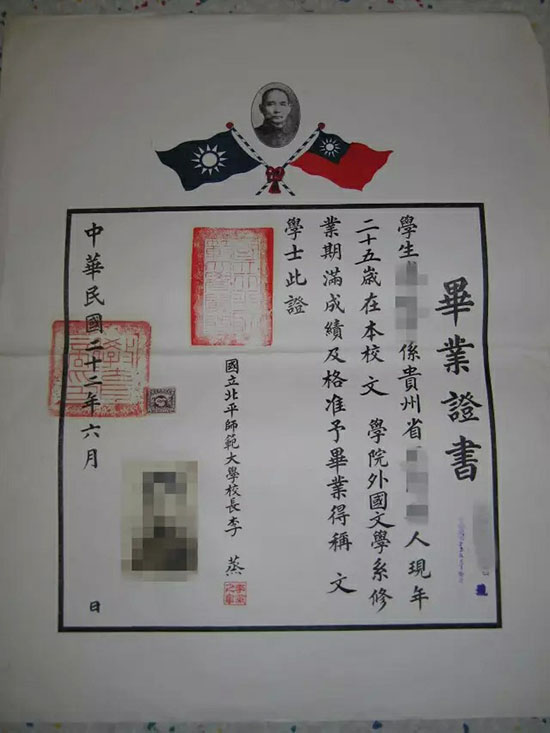 畢業證書
學生 係貴州省 人現年
二十五歲在本校文 學院外國文學系修
業期滿成績及格准予畢業得稱 文
學士此證
國立北平師範大學校長李 蒸
中華民國二十二年六月 日